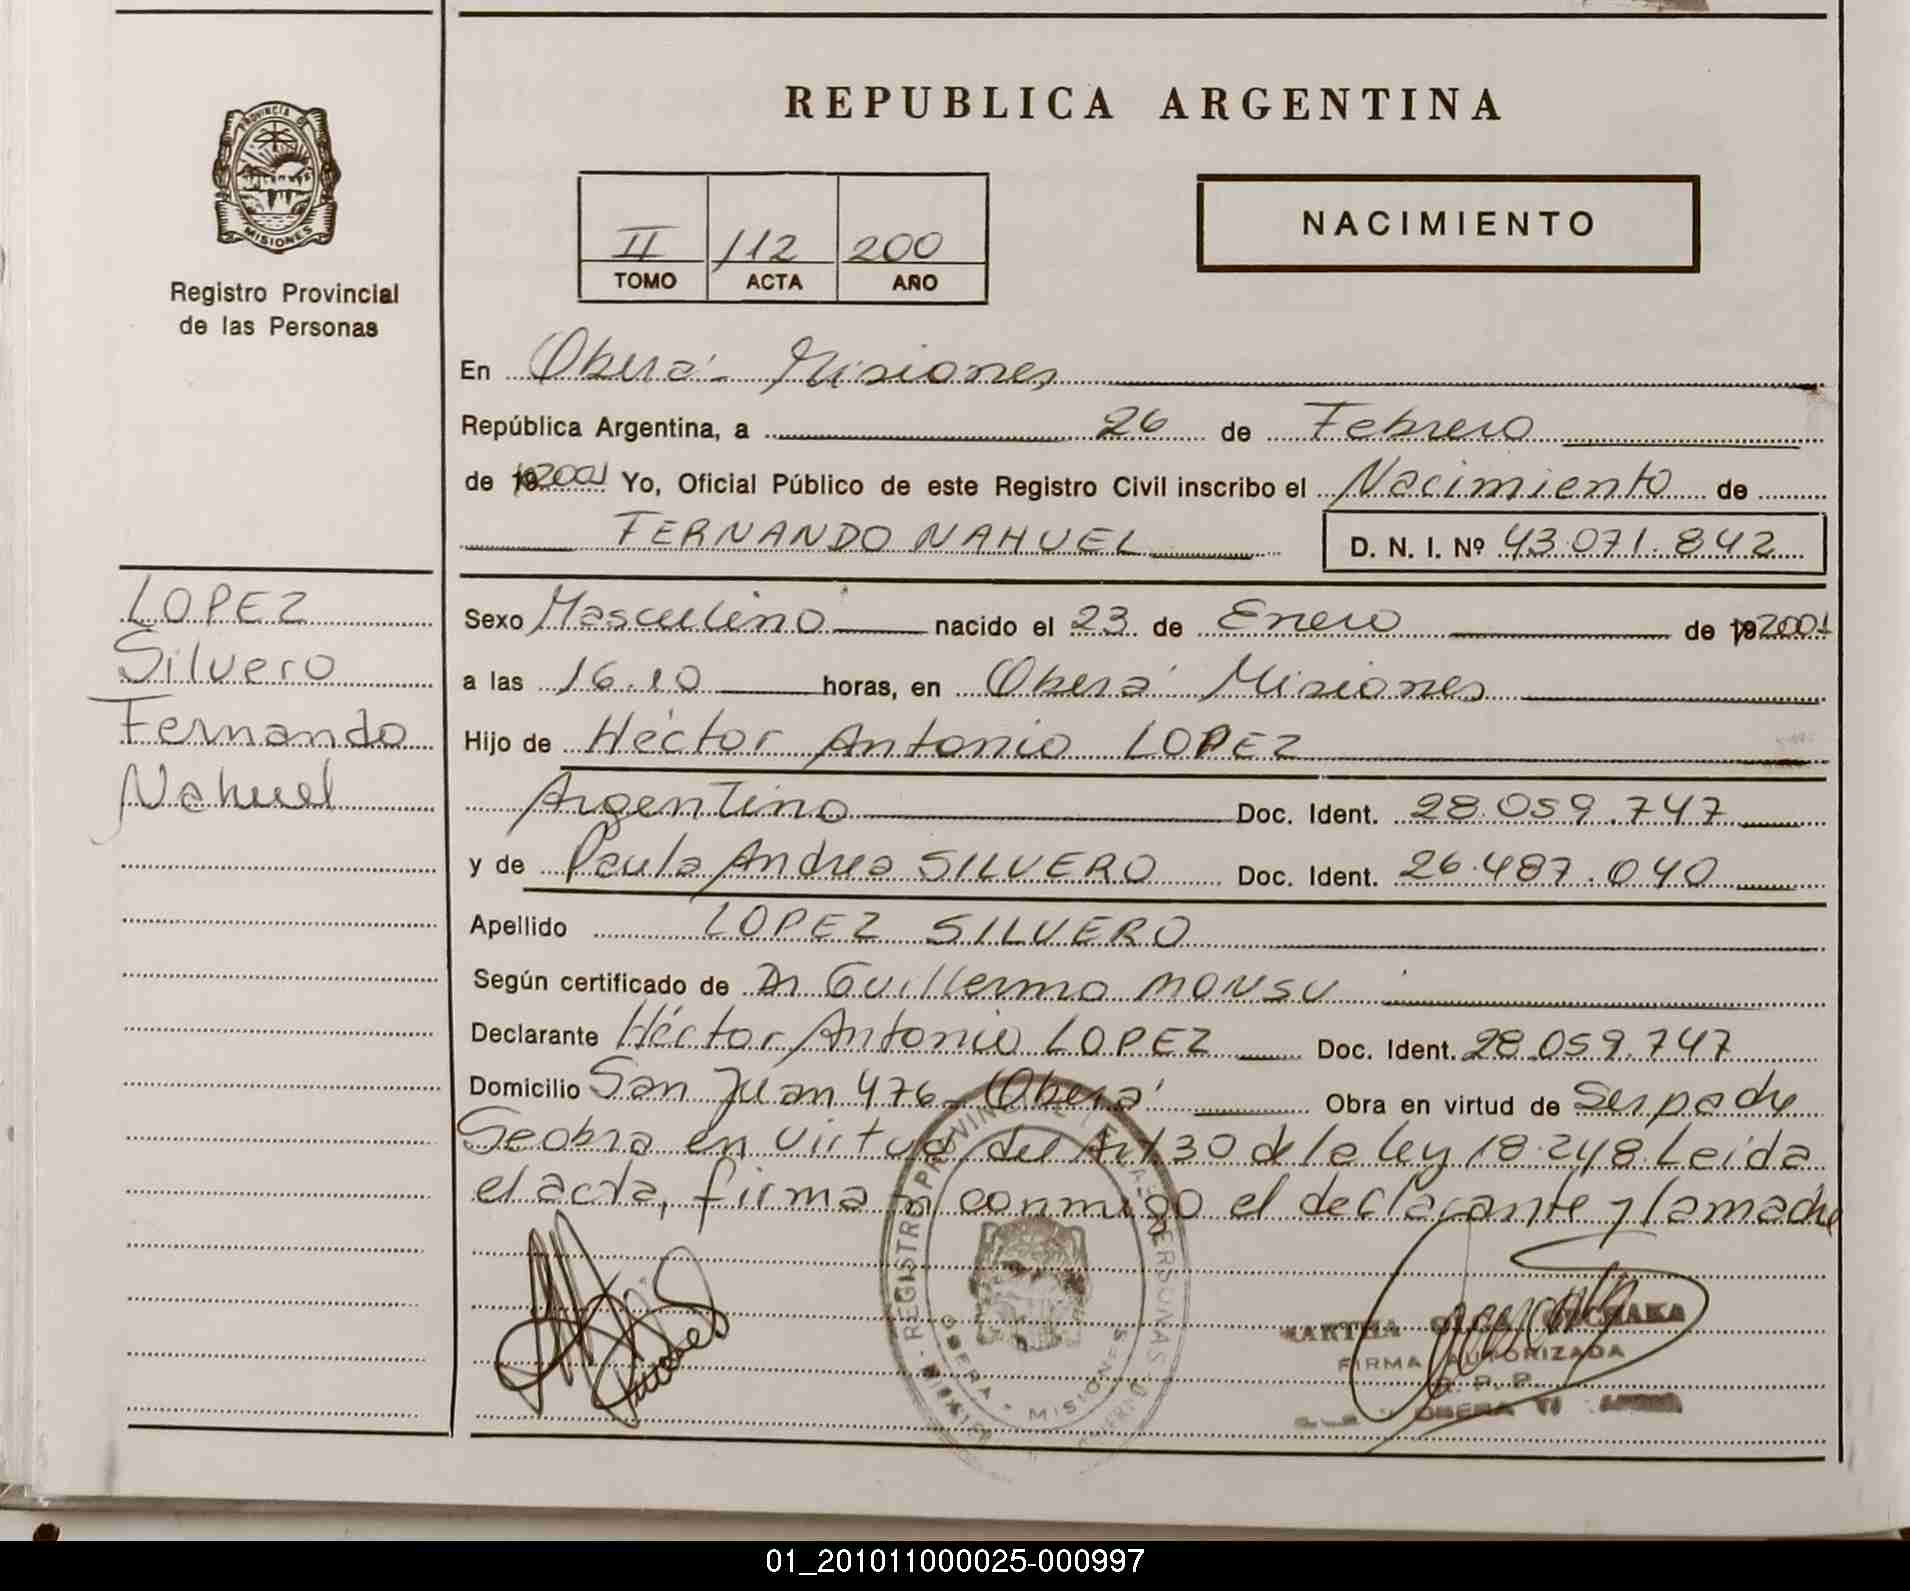 REPUBLICA ARGENTINA
PROVINCIA DE
MISIONES
Registro Provincial
de las Personas
II 112 200
TOMO ACTA AÑO
NACIMIENTO
En Oberá - Misiones
República Argentina, a 26 de Febrero
de 19 2001 Yo, Oficial Público de este Registro Civil inscribo el Nacimiento de
FERNANDO NAHUEL D. N. I. Nº 43.071.842
LOPEZ
Silvero
Fernando
Nahuel
Sexo Masculino nacido el 23 de Enero de 19 2001
a las 16.10 horas, en Oberá Misiones
Hijo de Héctor Antonio LOPEZ
Argentino Doc. Ident. 28.059.747
y de Paula Andrea SILVERO Doc. Ident. 26.487.040
Apellido LOPEZ SILVERO
Según certificado de Dr Guillermo MONSU
Declarante Héctor Antonio LOPEZ Doc. Ident. 28.059.747
Domicilio San Juan 476 - Oberá Obra en virtud de Ser padre
Se obra en virtud del Art 30 de la ley 18.248. Leida
el acta, firman conmigo el declarante y la madre
REGISTRO PROVINCIAL DE LAS PERSONAS
OBERA - MISIONES
MARTHA OLGA
FIRMA AUTORIZADA
R. P. P.
OBERA
01_201011000025-000997